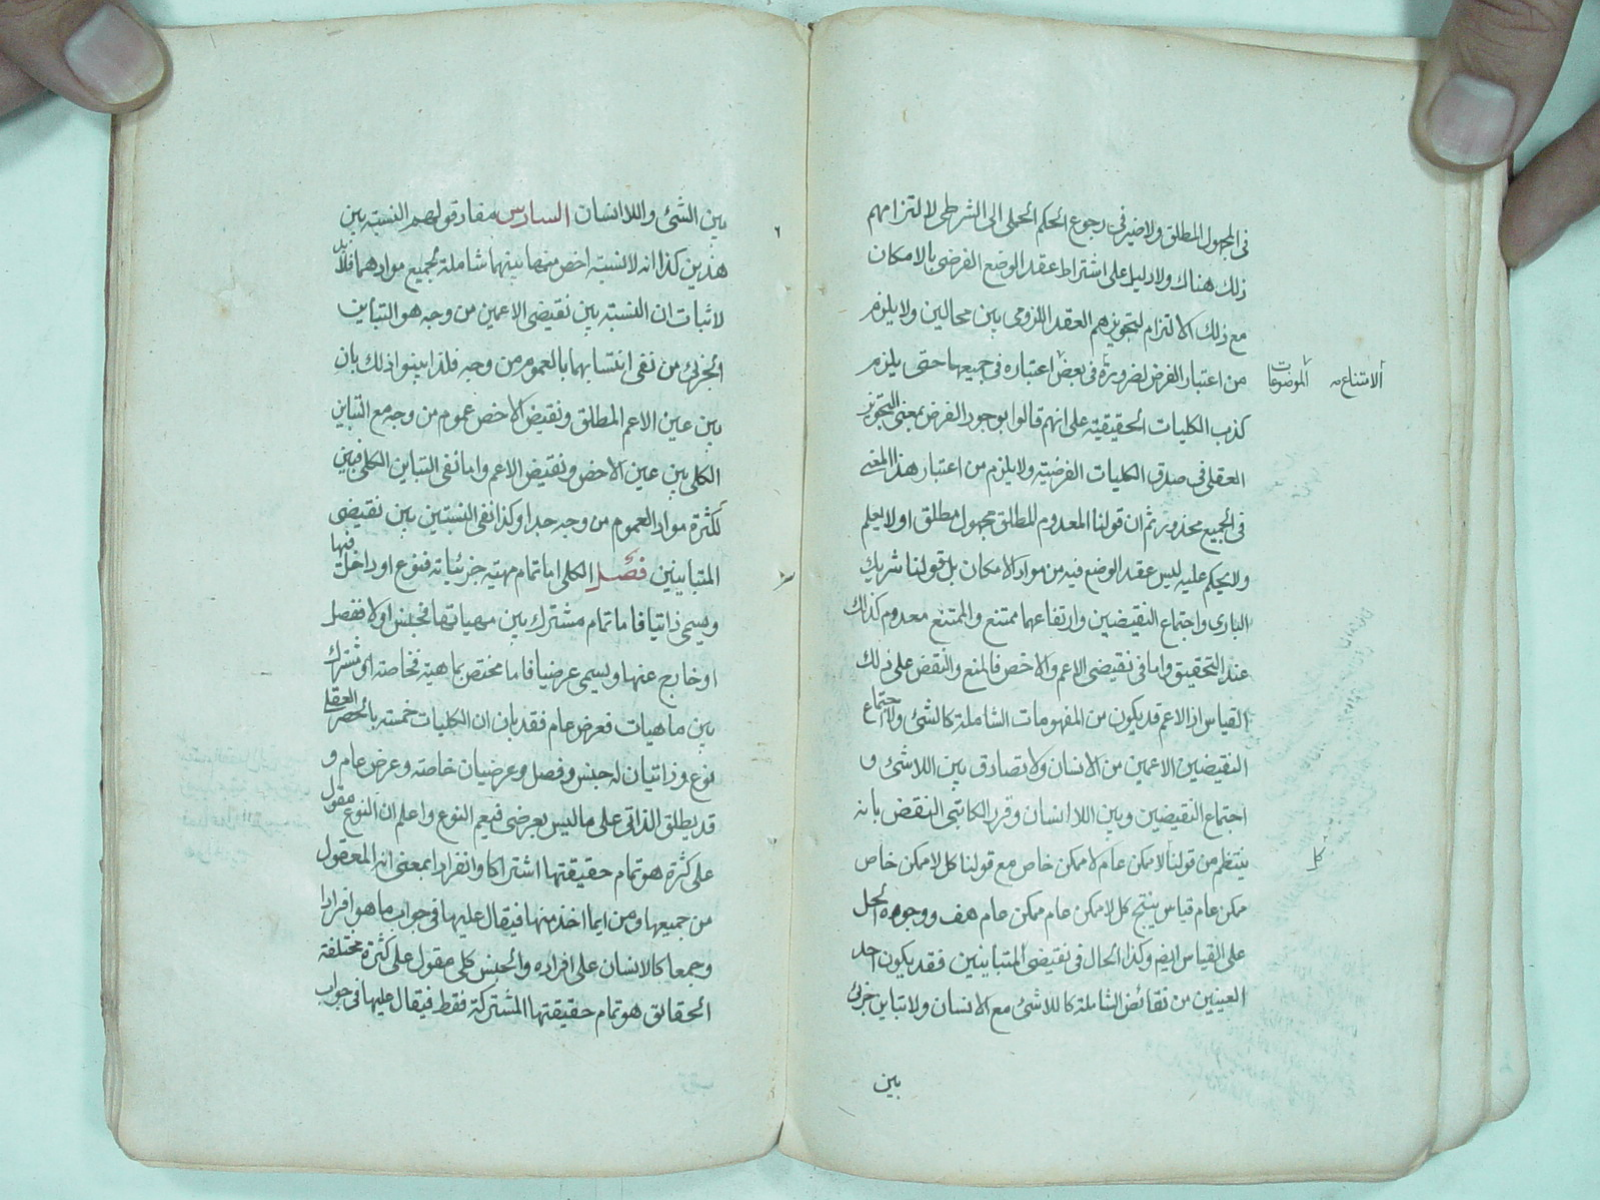 فى المجهول المطلق ولا ضير فى رجوع الحكم الحملى الى الشرطى لالتزامهم
ذلك هناك ولا دليل على اشتراط عقد الوضع الفرضى بالامكان
مع ذلك الالتزام لتجويزهم العقد اللزومى بين محالين ولا يلزم
من اعتبار الفرض لضرورة فى بعض اعتباره فى جميعها حتى يلزم
الموضوعات
الامتناع
كذب الكليات الحقيقية على انهم قالوا بوجود الفرض بمعنى التجويز
العقلى فى صدق الكليات الفرضية ولا يلزم من اعتبار هذا المعنى
فى الجميع محذور ثم ان قولنا المعدوم المطلق مجهول مطلق او لا يعلم
ولا يحكم عليه ليس عقد الوضع فيه من مواد الامكان بل قولنا شريك
البارى واجتماع النقيضين وارتفاعهما ممتنع والممتنع معدوم كذلك
عند التحقيق واما فى نقيضى الاعم والاخص فالمنع والنقض على ذلك
القياس اذ الاعم قد يكون من المفهومات الشاملة كالشئ ولا اجتماع
النقيضين الاعمين من الانسان ولا تصادق بين اللاشئ و
اجتماع النقيضين وبين اللاانسان وقرر الكاتبى النقض بانه
ينتظم من قولنا لاممكن عام لاممكن خاص مع قولنا كل لاممكن خاص
كل
ممكن عام قياس ينتج كل لاممكن عام ممكن عام هف ووجوه الحل
على القياس ايضا وكذا الحال فى نقيضى المتباينين فقد يكون احد
العينين من نقائض الشاملة كاللاشئ مع الانسان ولا تباين جزئى
بين
بين الشئ واللاانسان السادس مفاد قولهم النسبة بين
هذين كذا انه لا نسبة اخص منها بينهما شاملة لجميع موادهما فلابد
لاثبات ان النسبة بين نقيضى الاعمين من وجه هو التباين
الجزئى من نفى انتسابهما بالعموم من وجه فلذا بينوا ذلك بان
بين عين الاعم المطلق ونقيض الاخص عموم من وجه مع التباين
الكلى بين عين الاخص ونقيض الاعم واما نفى التباين الكلى فبين
لكثرة مواد العموم من وجه جدا وكذا نفى النسبتين بين نقيضى
المتباينين فصل الكلى اما تمام مهية جزئياته فنوع او داخل فيها
ويسمى ذاتيا فاما تمام مشترك بين مهياتها فجنس او لا ففصل
او خارج عنها ويسمى عرضيا فاما مختص بماهية فخاصة او مشترك
بين ماهيات فعرض عام فقد بان ان الكليات خمسة بالحصر العقلى
نوع وذاتيان له جنس وفصل وعرضيان خاصة وعرض عام و
قد يطلق الذاتى على ما ليس بعرضى فيعم النوع واعلم ان النوع مقول
على كثرة هو تمام حقيقتها اشتراكا وانفرادا بمعنى انه المعقول
من جميعها ومن ايما اخذ منها فيقال عليها فى جواب ما هو افرادا
وجمعا كالانسان على افراده والجنس كلى مقول على كثرة مختلفة
الحقائق هو تمام حقيقتها المشتركة فقط فيقال عليها فى جواب